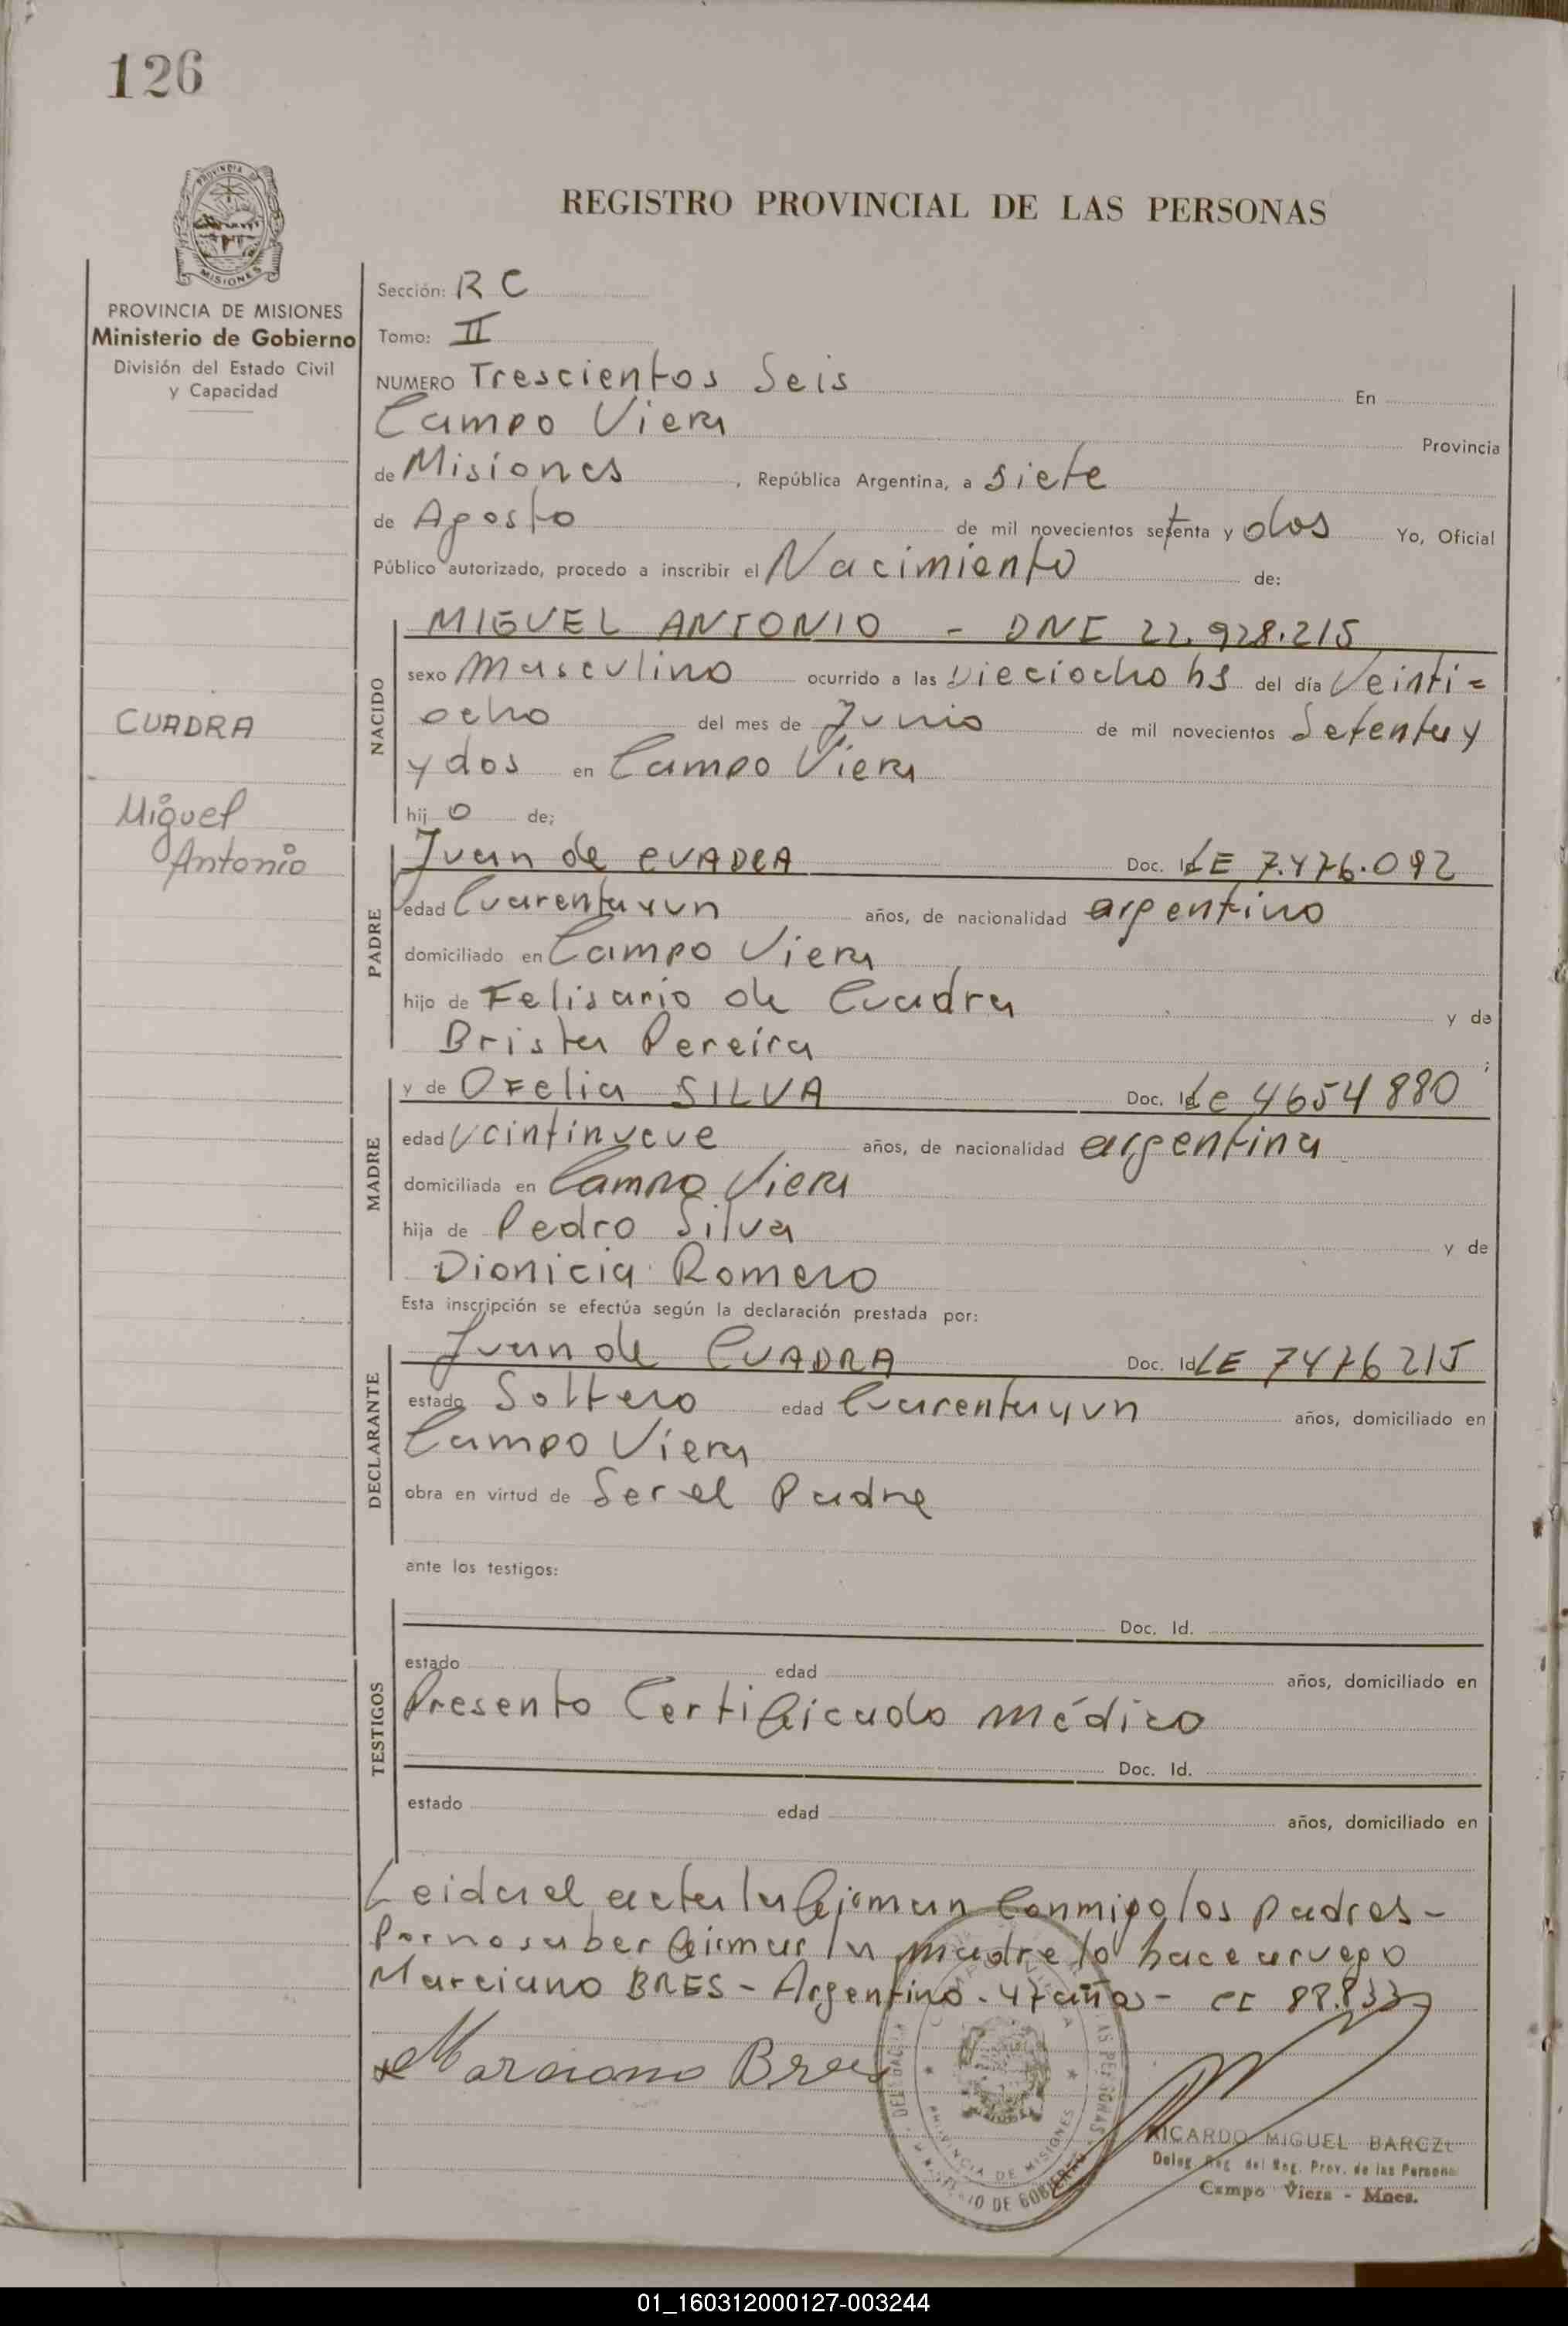 126
REGISTRO PROVINCIAL DE LAS PERSONAS
PROVINCIA DE MISIONES
Ministerio de Gobierno
División del Estado Civil
y Capacidad
CUADRA
Miguel
Antonio
Sección: R C
Tomo: II
NUMERO Trescientos Seis En
Campo Viera Provincia
de Misiones , República Argentina, a siete
de Agosto de mil novecientos setenta y dos Yo, Oficial
Público autorizado, procedo a inscribir el Nacimiento de:
NACIDO
MIGUEL ANTONIO - DNI 22.928.215
sexo Masculino ocurrido a las Dieciocho hs del día Veinti=
ocho del mes de Junio de mil novecientos Setenta y
y dos en Campo Viera
hij o de;
PADRE
Juan de CUADRA Doc. Id LE 7.476.092
edad Cuarenta y un años, de nacionalidad argentino
domiciliado en Campo Viera
hijo de Felisario de Cuadra y de
Brista Pereira ;
MADRE
y de Ofelia SILVA Doc. Id Le 4654880
edad veintinueve años, de nacionalidad argentina
domiciliada en Campo Viera
hija de Pedro Silva y de
Dionicia Romero
Esta inscripción se efectúa según la declaración prestada por:
DECLARANTE
Juan de CUADRA Doc. Id LE 7476215
estado Soltero edad Cuarenta y un años, domiciliado en
Campo Viera
obra en virtud de Ser el Padre
ante los testigos:
TESTIGOS
Doc. Id.
estado edad años, domiciliado en
Presento Certificado médico
Doc. Id.
estado edad años, domiciliado en
Leida el acta la firman Conmigo los padres -
Por no saber firmar la madre lo hace a ruego
Marciano BRES - Argentino - 47 años - CI 88.833
Marciano Bres
PROVINCIA DE MISIONES
MINISTERIO DE GOBIERNO
RICARDO MIGUEL BARCZ
Deleg. Reg. del Reg. Prov. de las Personas
Campo Viera - Mnes.
01_160312000127-003244